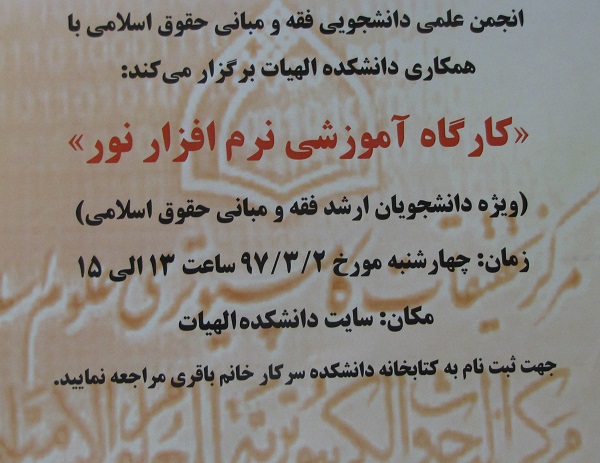 انجمن علمی دانشجویی فقه و مبانی حقوق اسلامی با
همکاری دانشکده الهیات برگزار می‌کند:
«کارگاه آموزشی نرم افزار نور»
(ویژه دانشجویان ارشد فقه و مبانی حقوق اسلامی)
زمان: چهارشنبه مورخ ۹۷/۳/۲ ساعت ۱۳ الی ۱۵
مکان: سایت دانشکده الهیات
جهت ثبت نام به کتابخانه دانشکده سرکار خانم باقری مراجعه نمایید.
مرکز تحقیقات کامپیوتری علوم اسلا